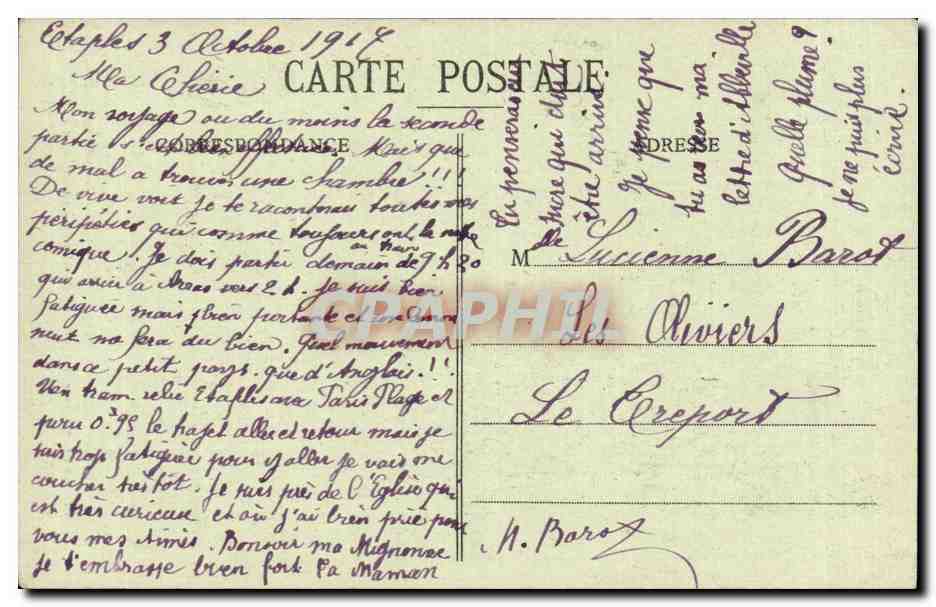 Etaples 3 Octobre 1917
Ma Chérie
CARTE POSTALE
CORRESPONDANCE
ADRESSE
Mon voyage ou du moins la seconde
partie s'est bien Mais que
de mal a trouver une chambre !!!
De vive voix je te raconterai toutes mes
péripéties qui comme toujours ont la note
comique. Je dois partir demain au train de 9h20
qui arrive à Arras vers 2h. Je suis bien
fatiguée mais bien portante et une bonne
nuit me fera du bien. Quel mouvement
dans ce petit pays. que d'Anglais.!!
Un tram relie Etaples avec Paris Plage et
pour 0.95 le trajet aller et retour mais je
suis trop fatiguée pour y aller je vais me
coucher très tôt. Je suis près de l'Eglise qui
est très curieuse et où j'ai bien prié pour
vous mes Aimés. Bonsoir ma Mignonne
je t'embrasse bien fort ta Maman
Tu penseras au
sucre qui doit
être arrivé
Je pense que
tu as ma
lettre d'Abbeville
quelle plume ?
je ne puis plus
écrire.
M de Lucienne Barot
Les Oliviers
Le Treport
M. Barot
CPAPHIL